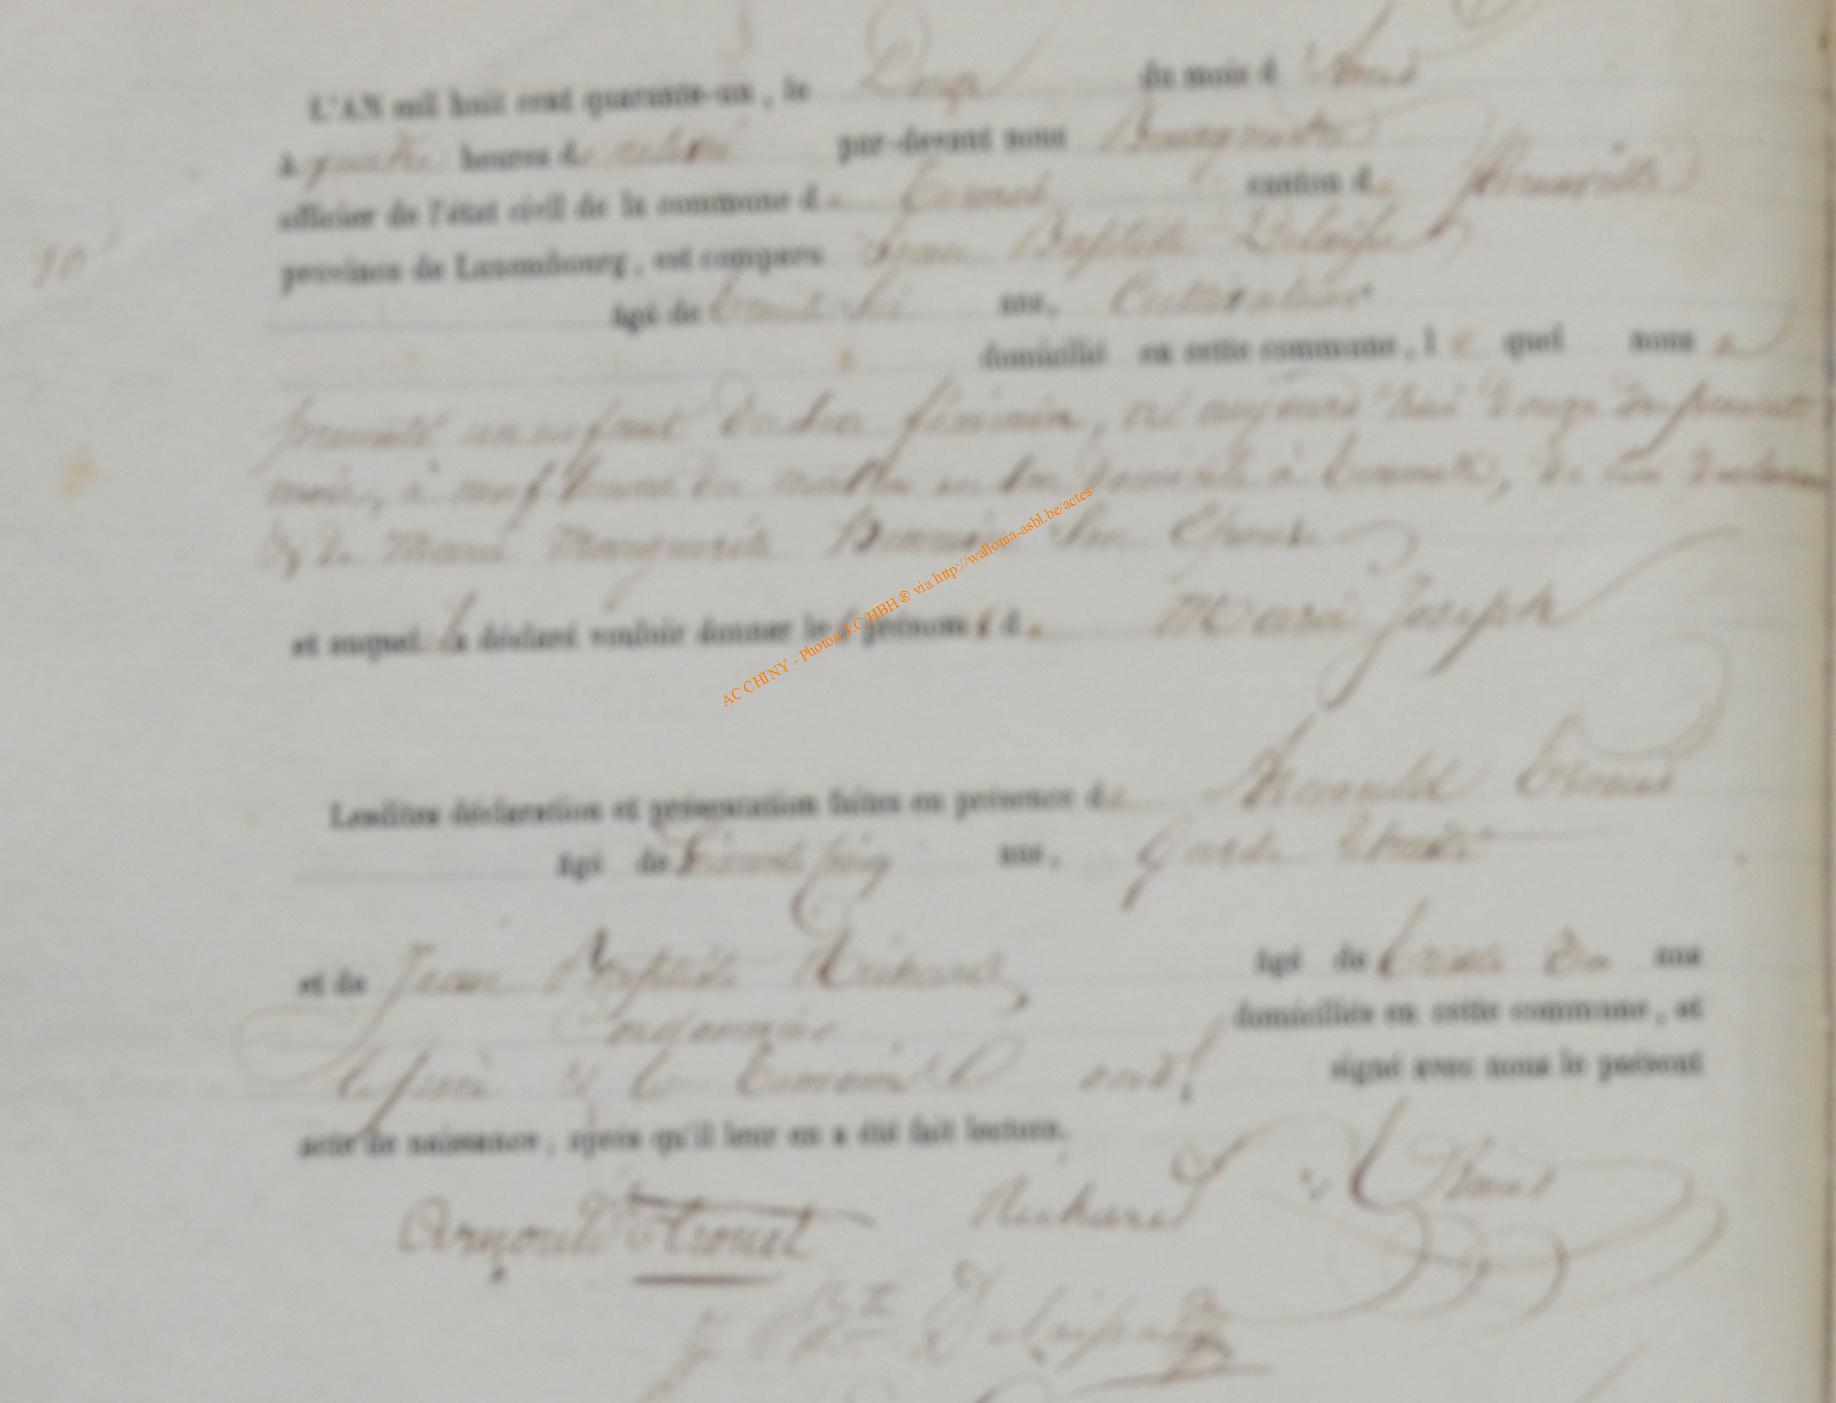 L'AN mil huit cent quarante-un, le Douze du mois d'Aout
à quatre heures de relevé par-devant nous Bourgmestre
officier de l'état civil de la commune de Termes canton de Florenville
province de Luxembourg, est comparu Jean Baptiste Delaisse
âgé de trente six ans, Cultivateur
domicilié en cette commune, lequel nous a
présenté un enfant du sexe féminin, né aujourd'hui douze du present
mois, à neuf heures du matin en son domicile à Termes, de lui déclarant
et de Marie Marguerite son Epouse
et auquel il a déclaré vouloir donner les prénoms de Marie Joseph
10
Lesdites déclaration et présentation faites en présence de Arnould Trouet
âgé de cinq ans, Garde
et de Jean Baptiste Richard âgé de trente ans
Cordonnier domiciliés en cette commune, et
le père et les temoins ont signé avec nous le présent
acte de naissance, après qu'il leur en a été fait lecture.
Arnould Trouet Richard
J Bte Delaisse
AC CHINY - Photos J.C/HBH ® via http://wallonia-asbl.be/actes